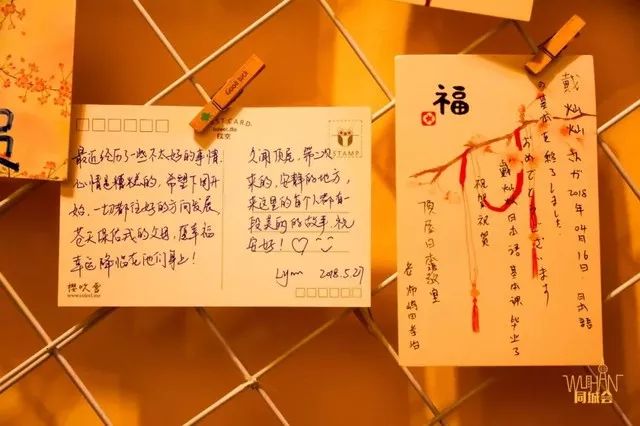 GOOD LUCK
STCARD.
STAMP
最近经历了一些不太好的事情
心情是糟糕的，希望下周开
始，一切都往好的方向发展
苍天保佑我的父母，愿幸福
幸运降临在他们身上！
樱吹雪
久闻顶屋，第二次
来的，安静的地方，
来这里的每个人都有一
段美丽的故事，祝
安好！
Lynn 2018.5.27
福
戴灿灿さんが2018年04月16日 日本語
の基本を終了しました。
おめでとうございます
戴灿灿日本語基本課毕业了
祝贺祝贺
顶屋日本語教室
老师
WUHAN
同城会